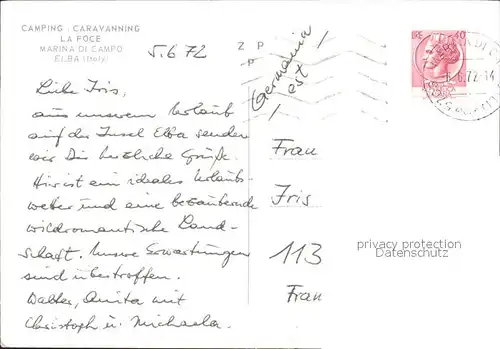 CAMPING - CARAVANNING
LA FOCE
MARINA DI CAMPO
ELBA (Italy)
5.6.72
Liebe Iris,
aus unserem Urlaub
auf der Insel Elba senden
wir Dir herzliche Grüße.
Hier ist ein ideales Urlaubs-
wetter und eine bezaubernde
wildromantische Land-
schaft. Unsere Erwartungen
sind übertroffen.
Walter, Anita mit
Christoph u. Michaela.
Germania
est
Z P
P
LIRE 40
.6.72-14
Frau
Iris
113
Frau
privacy protection
Datenschutz